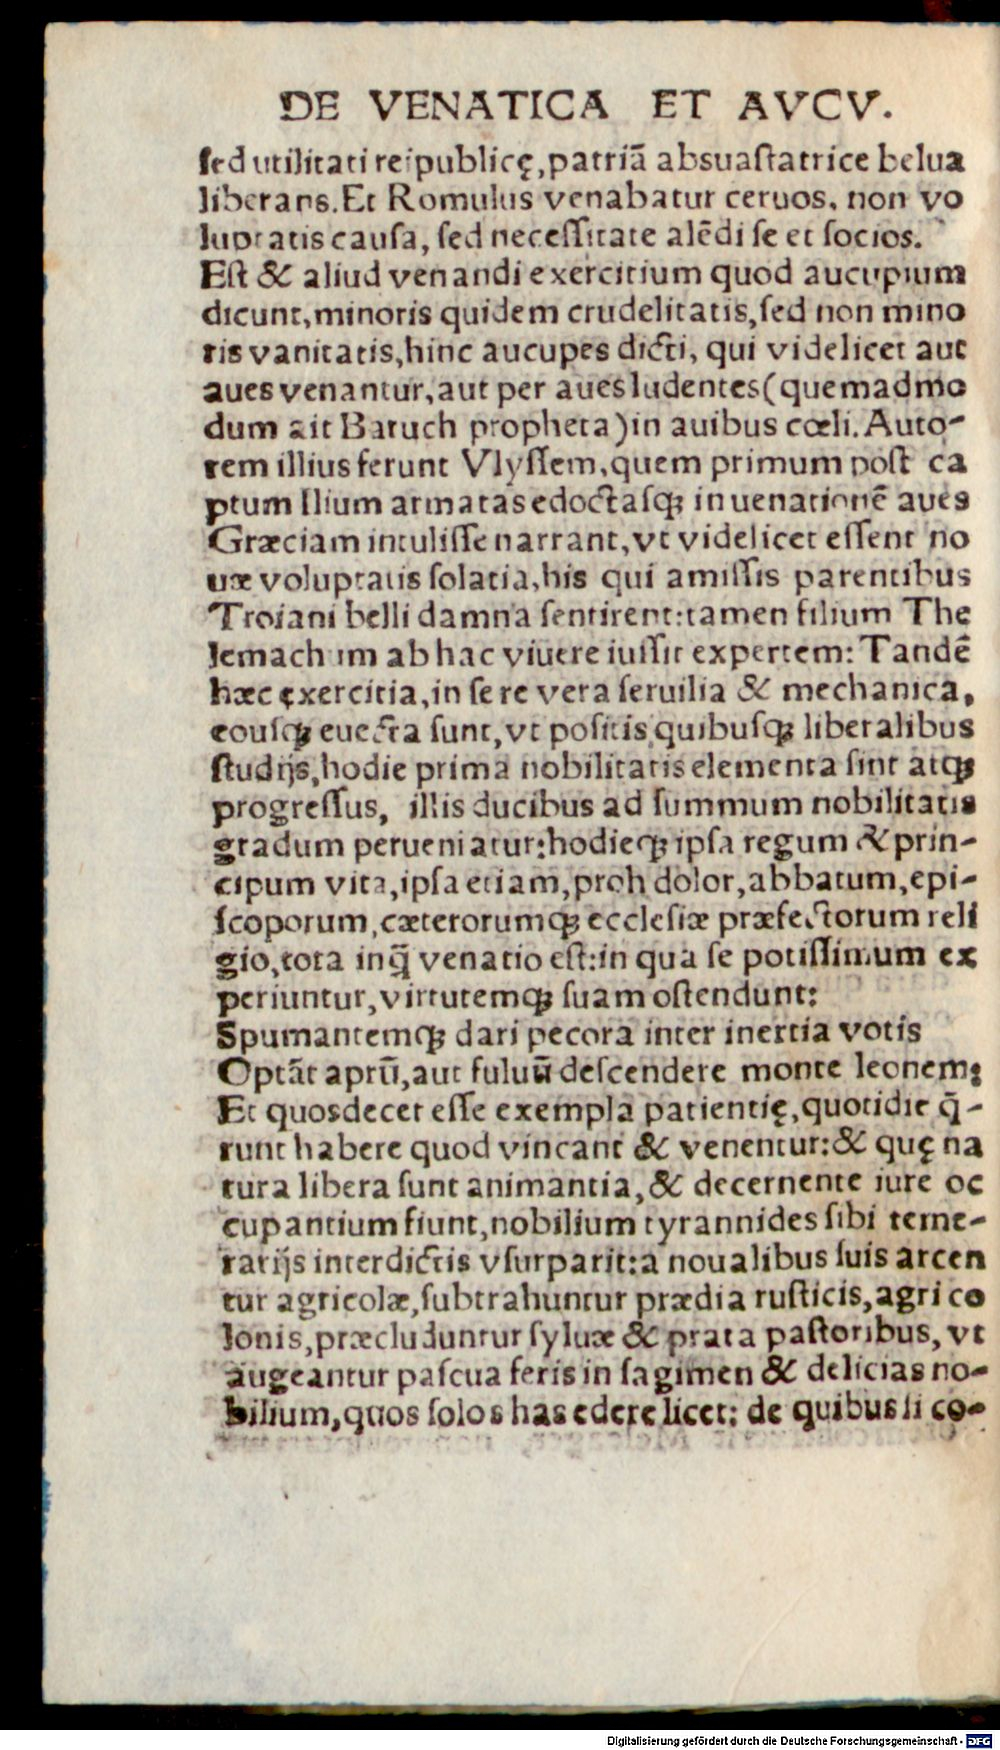 DE VENATICA ET AVCV.
sed utilitati reipublicę, patriā absuastatrice belua
liberans. Et Romulus venabatur ceruos, non vo
luptatis causa, sed necessitate alēdi se et socios.
Est & aliud venandi exercitium quod aucupium
dicunt, minoris quidem crudelitatis, sed non mino
ris vanitatis, hinc aucupes dicti, qui videlicet aut
aues venantur, aut per aues ludentes (quemadmo
dum ait Baruch propheta) in auibus cœli. Auto-
rem illius ferunt Vlyssem, quem primum post ca
ptum Ilium armatas edoctasqꝫ in uenationē aues
Græciam intulisse narrant, vt videlicet essent no
uæ voluptatis solatia, his qui amissis parentibus
Troiani belli damna sentirent: tamen filium The
lemachum ab hac viuere iussit expertem: Tandē
hæc exercitia, in se re vera seruilia & mechanica,
eousqꝫ euecta sunt, vt positis quibusqꝫ liberalibus
studijs, hodie prima nobilitatis elementa sint atqꝫ
progressus, illis ducibus ad summum nobilitatis
gradum perueniatur: hodieqꝫ ipsa regum & prin-
cipum vita, ipsa etiam, proh dolor, abbatum, epi-
scoporum, cæterorumqꝫ ecclesiæ præfectorum reli
gio, tota inq̄ venatio est: in qua se potissimum ex
periuntur, virtutemqꝫ suam ostendunt:
Spumantemqꝫ dari pecora inter inertia votis
Optāt aprū, aut fuluū descendere monte leonem:
Et quos decet esse exempla patientię, quotidie q̄-
runt habere quod vincant & venentur: & quę na
tura libera sunt animantia, & decernente iure oc
cupantium fiunt, nobilium tyrannides sibi teme-
rarijs interdictis vsurparit: a noualibus suis arcen
tur agricolæ, subtrahuntur prædia rusticis, agri co
lonis, præcluduntur syluæ & prata pastoribus, vt
augeantur pascua feris in sagimen & delicias no-
bilium, quos solos has edere licet: de quibus si co-
Digitalisierung gefördert durch die Deutsche Forschungsgemeinschaft - DFG